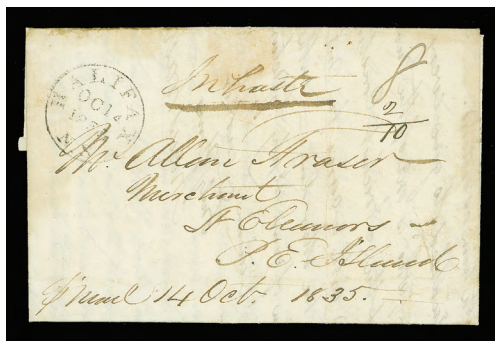 HALIFAX
OC 14
183
N
In haste
8
2
10
Mr. Allan Fraser
Merchant
St Eleanors
P. E. Island
p mail 14 Oct. 1835.